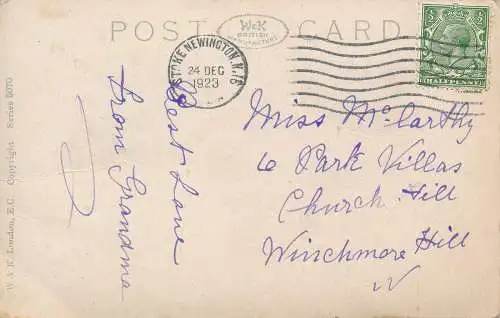 POST CARD
W&K
BRITISH
MANUFACTURE
STOKE NEWINGTON. N.16
24 DEC
1923
HALFPENNY
Best Love
from Grandma
Miss McCarthy
6 Park Villas
Church Hill
Winchmore Hill
N
W & K London, E.C. Copyright Series 9070